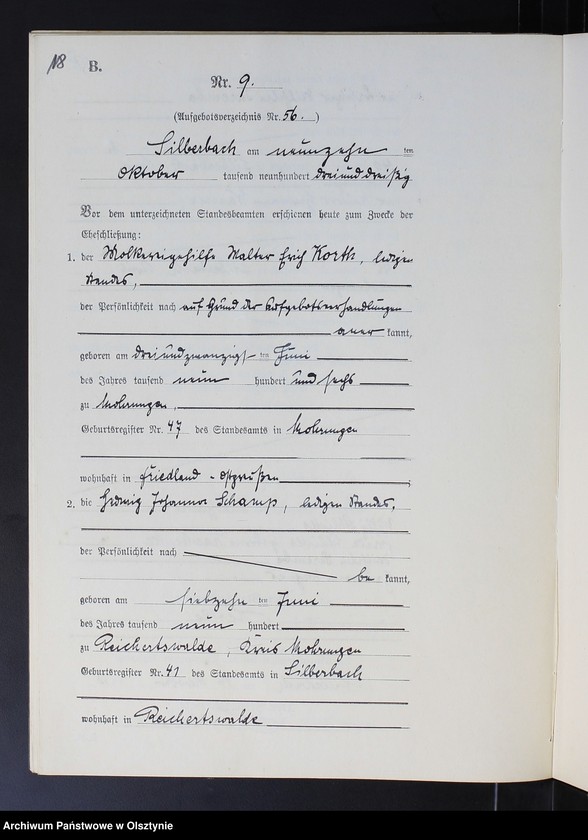 18
B.
Nr. 9.
(Aufgebotsverzeichnis Nr. 56.)
Silberbach am neunzehn ten
Oktober tausend neunhundert dreiunddreißig
Vor dem unterzeichneten Standesbeamten erschienen heute zum Zwecke der
Eheschließung:
1. der Molkereigehilfe Walter Erich Korth, ledigen
Standes,
der Persönlichkeit nach auf Grund der Aufgebotsverhandlungen
aner kannt,
geboren am dreiundzwanzigs ten Juni
des Jahres tausend neun hundert und sechs
zu Mohrungen,
Geburtsregister Nr. 47 des Standesamts in Mohrungen
wohnhaft in Friedland - Ostpreußen
2. die Hedwig Johanna Schamp, ledigen Standes,
der Persönlichkeit nach
be kannt,
geboren am siebzehn ten Juni
des Jahres tausend neun hundert
zu Reichertswalde, Kreis Mohrungen
Geburtsregister Nr. 41 des Standesamts in Silberbach
wohnhaft in Reichertswalde
Archiwum Państwowe w Olsztynie